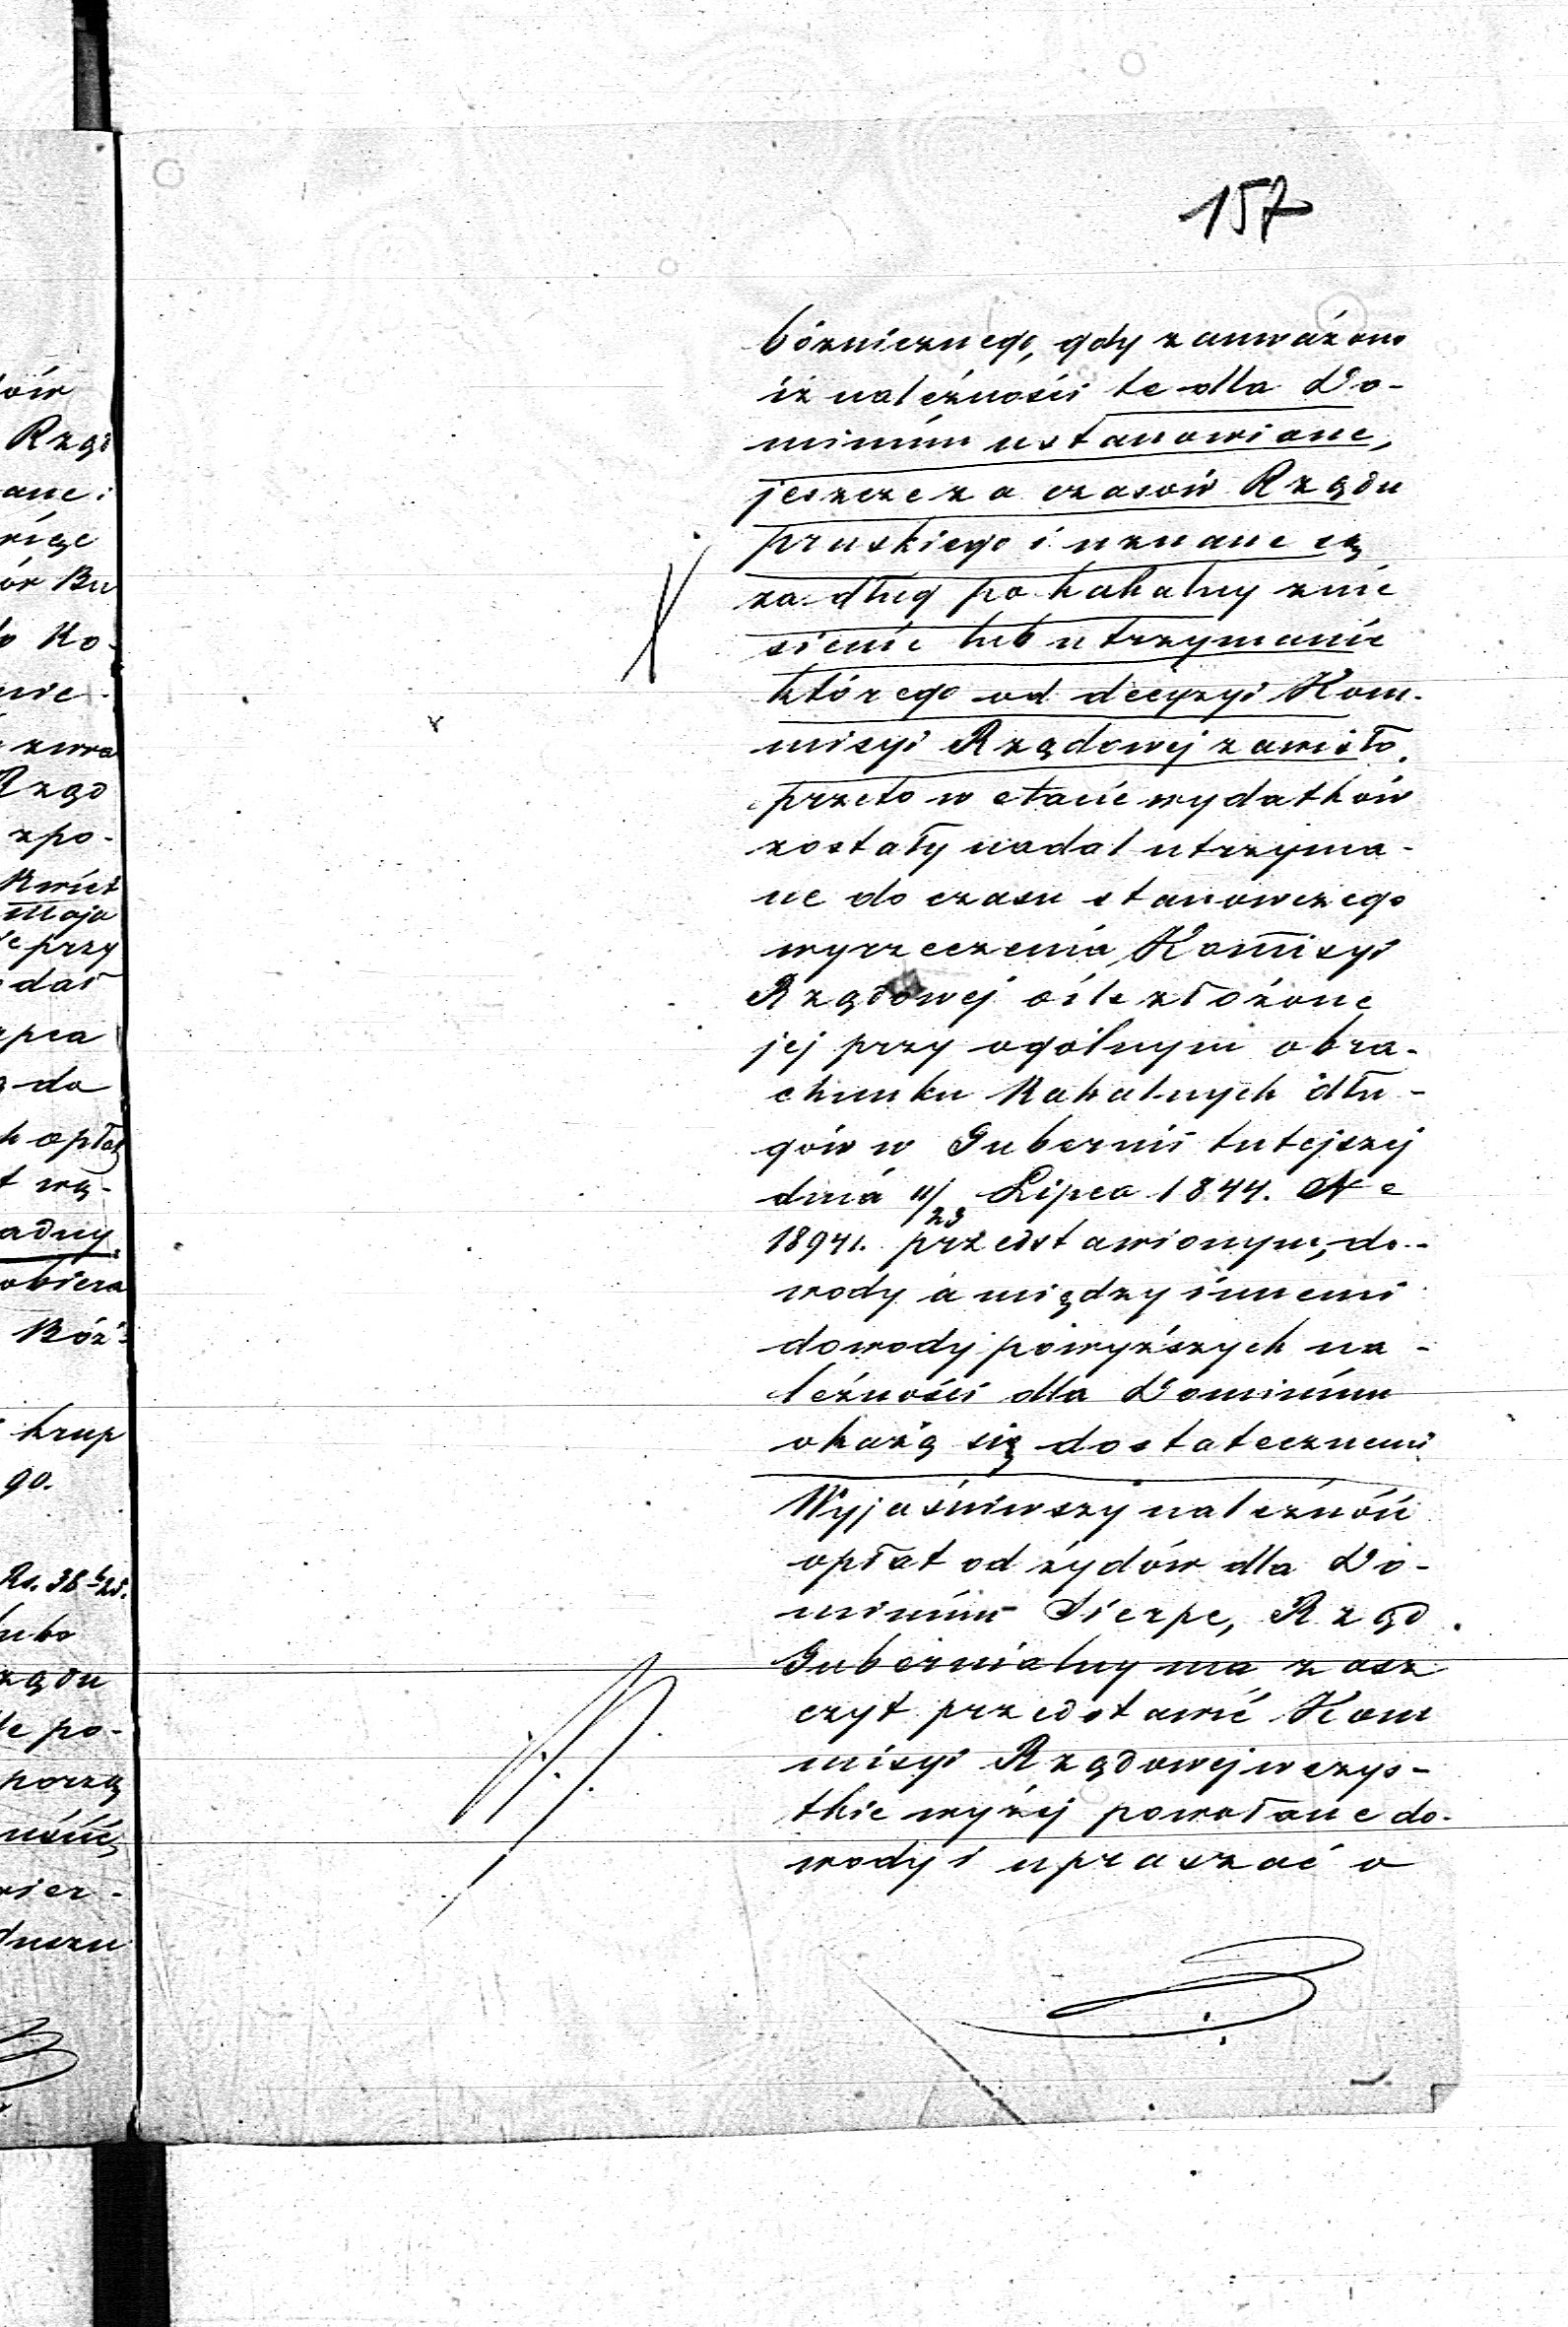 157
bóżnicznego, gdy zauważono
iż należności te dla Do-
minium ustanowione,
jeszcze za czasów Rządu
pruskiego i uznane są
za dług pokahalny znie
sienie lub utrzymanie
którego od decyzyi Kom-
misyi Rządowej zawisło,
przeto w etacie wydatków
zostały nadal utrzyma-
ne do czasu stanowczego
wyrzeczenia Kommisyi
Rządowej o ile złożone
jej przy ogólnym obra-
chunku Kahalnych dłu-
gów w Gubernii tutejszej
dnia 11/23 Lipca 1844. N
18941. przedstawionym, do-
wody a między innemi
dowody powyższych na-
leżności dla Dominium
okażą się dostatecznemi.
Wyjaśniwszy należność
opłat od żydów dla Do-
minium Sierpc, Rząd
Gubernialny ma zasz
czyt przedstawić Kom
misyi Rządowej wszys-
tkie wyżej powołane do-
wody i upraszać o
Rząd
ane:
ór Bu
Ko-
nie-
Rząd
zpo-
Kwiet
Maja
przy
dał
pca
do
opłat
wą-
adny
obiera
Bóź-
krup
90.
Rs. 38
po-